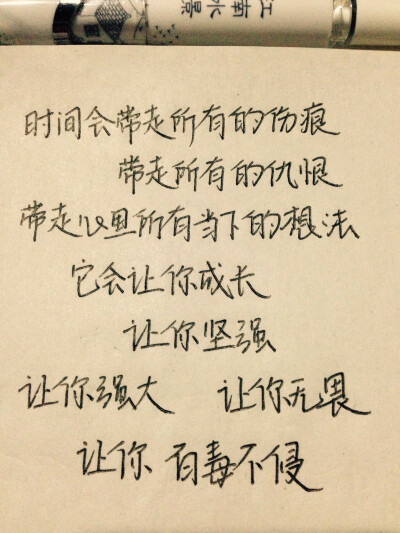 江南水景
时间会带走所有的伤痕
带走所有的仇恨
带走心里所有当下的想法
它会让你成长
让你坚强
让你强大 让你无畏
让你 百毒不侵